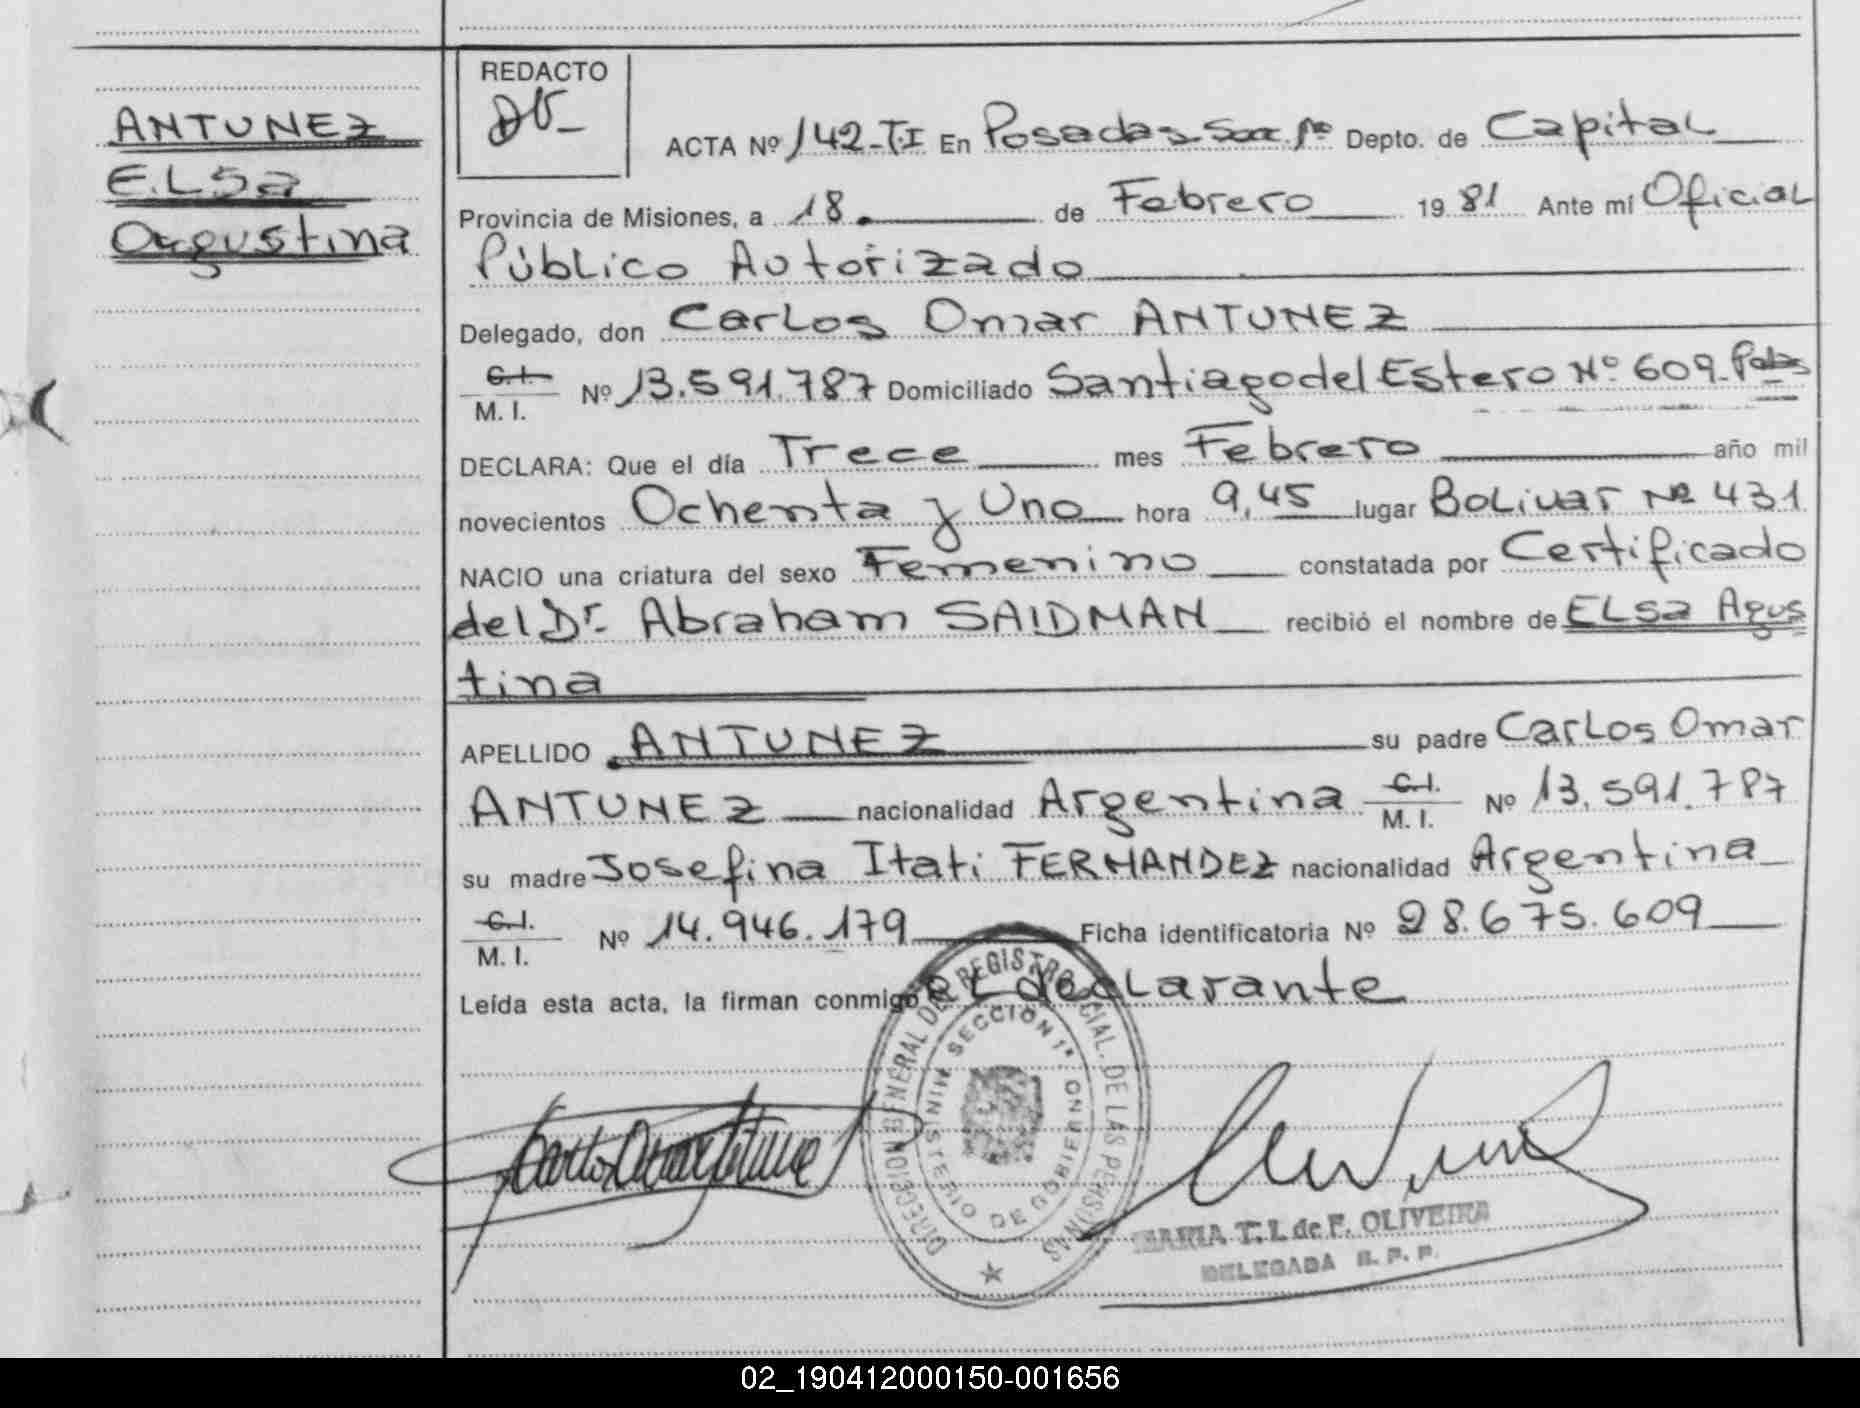 ANTUNEZ
ELSa
Augustina
REDACTO
ACTA Nº 142-T.I En Posadas Secc. 1ª Depto. de Capital
Provincia de Misiones, a 18. de Febrero 1981 Ante mí Oficial
Público Autorizado
Delegado, don Carlos Omar ANTUNEZ
C.I.
M. I. Nº 13.591.787 Domiciliado Santiago del Estero Nº 609 - Pdas
DECLARA: Que el día Trece mes Febrero año mil
novecientos Ochenta y Uno hora 9,45 lugar Bolivar Nº 431
NACIO una criatura del sexo Femenino constatada por Certificado
del Dr. Abraham SAIDMAN recibió el nombre de ELSa Agus
tina
APELLIDO ANTUNEZ su padre Carlos Omar
ANTUNEZ nacionalidad Argentina C.I. M. I. Nº 13.591.787
su madre Josefina Itati FERNANDEZ nacionalidad Argentina
C.I.
M. I. Nº 14.946.179 Ficha identificatoria Nº 28.675.609
Leída esta acta, la firman conmigo el declarante
DIRECCION GENERAL DEL REGISTRO PCIAL. DE LAS PERSONAS
SECCION 1ª
MINISTERIO DE GOBIERNO
MARIA T. I. de F. OLIVEIRA
DELEGADA R. P. P.
02_190412000150-001656